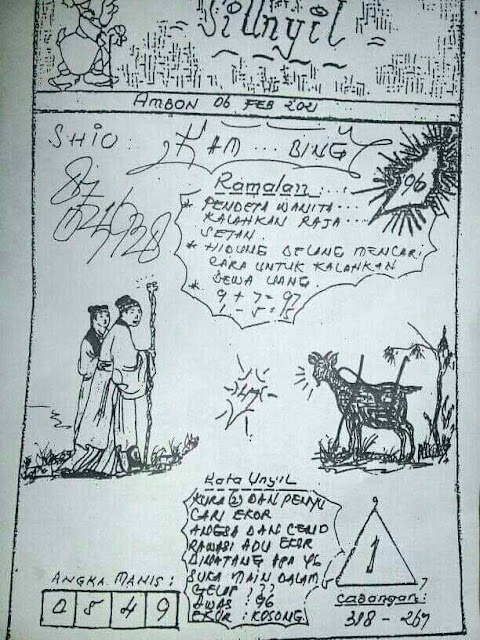 SiUnyil
AMBON 06 FEB 2021
SHIO: KAM... BING
96
Ramalan:
* PENDETA WANITA...
KALAHKAN RAJA...
SETAN.
* HIDUNG BELANG MENCARI
CARA UNTUK KALAHKAN
DEWA UANG.
9 + 7 = 97
1 - 5 = 15
47
Kata Unyil
KURA (2) DAN PENYU
CARI EKOR
ANGSA DAN CEND
RAWASI ADU EKOR
BINATANG APA YG
SUKA MAIN DALAM
GELAP ???
AWAS : 96
EKOR : KOSONG
1
ANGKA MANIS:
0 8 4 9
Cabangan:
318 - 267